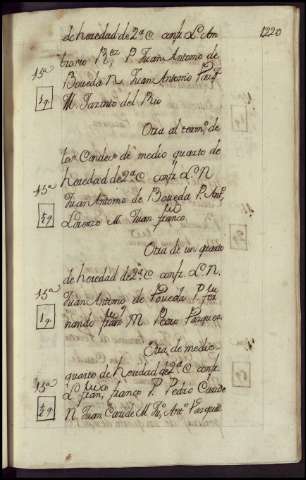 1220
de heredad de 2ª C confr. L. An
tonio Rez. P. Juan Antonio de
15ª Boveda N. Juan Antonio
M. Jazinto del Rio
Otra al termº de
de medio quarto de
15ª heredad de 2ª C confr. L. N.
Juan Antonio de Boveda P. Antº
Lorenzo M. Juan franco.
Otra de un quarto
de heredad de 2ª C confr. L. N.
15ª Juan Antonio de Boveda P.
nando M. Pedro Vazquez
Otra de medio
quarto de heredad de 2ª C confr.
15ª L. Juan franco P. Pedro Caride
N. Juan Caride M. Antº Vazquez